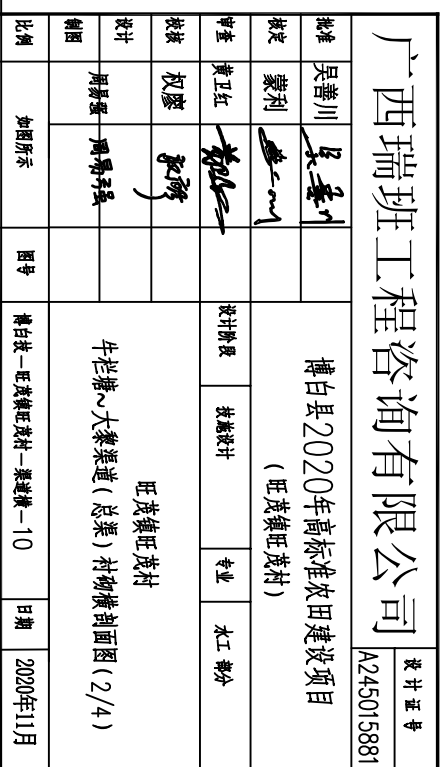 广西瑞班工程咨询有限公司
设计证号
A245015881
批准 吴善川
核定 蒙利
审查 黄卫红
校核 权廖
设计
制图
周易强 周易强
博白县2020年高标准农田建设项目
（旺茂镇旺茂村）
设计阶段 技施设计 专业 水工 部分
旺茂镇旺茂村
牛栏塘~大黎渠道（总渠）衬砌横剖面图（2/4）
比例 如图所示 图号 博白技—旺茂镇旺茂村—渠道横—10 日期 2020年11月